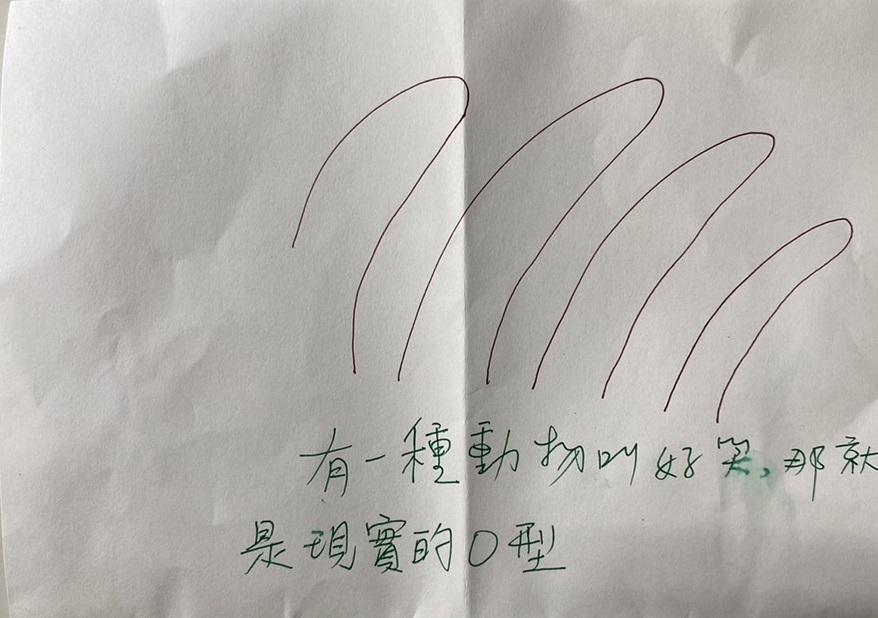 有一種動物叫好笑,那就
是現實的O型